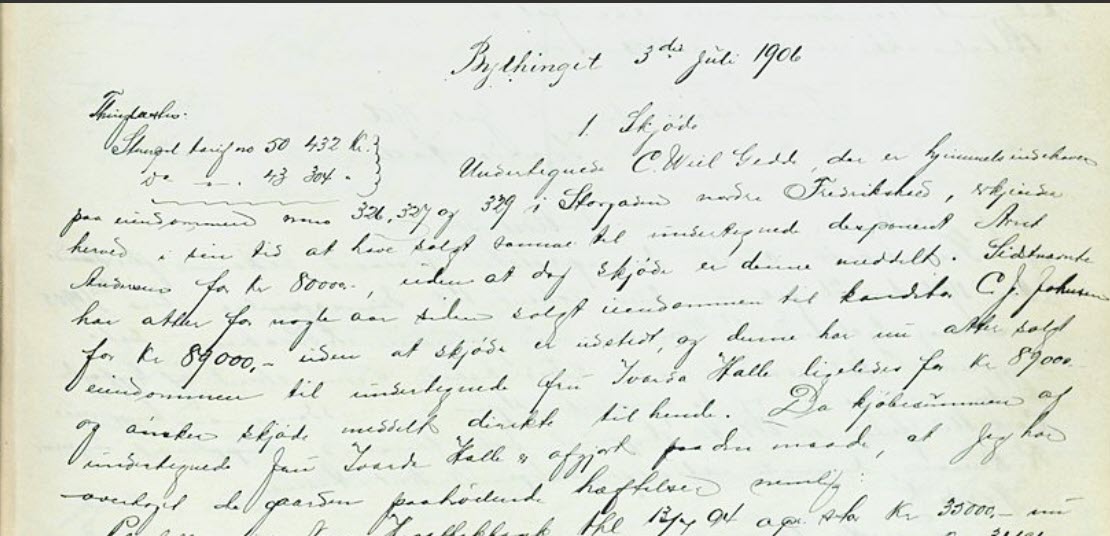 Bythinget 3die Juli 1906
1. Skjøde
Stempel tarif no 50 432 Kr.
Do - . 43 304 "
Undertegnede C. Wiil Gedde, der er hjemmelsindehaver
paa eiendommen mno 326, 327 og 329 i Storgaden nordre Fredrikstad, erkjender
herved i sin tid at have solgt samme til undertegnede disponent Arnt
Andersen for Kr 80000.-, uden at dog skjøde er denne meddelt. Sidstnævnte
har atter for nogle aar siden solgt eiendommen til konditor C. J. Johnsen
for Kr 89000,- uden at skjøde er udstedt, og denne har nu atter solgt
eiendommen til undertegnede fru Halle ligeledes for Kr 89000.-
og ønsker skjøde meddelt direkte til hende. Da kjøbesummen af
undertegnede Fru Halle er afgjort paa den maade, at jeg har
overtaget de gaarden paahvilende hæftelser nemlig:
Kr 35000,- nu